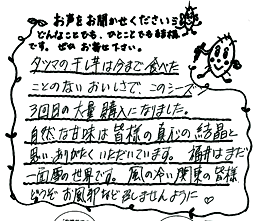 お声をお聞かせください
どんなことでも、ひとことでも結構
です。ぜひお寄せ下さい。
タツマの干し芋は今まで食べた
ことのないおいしさで、このシーズン
3回目の大量購入になりました。
自然な甘味は皆様の真心の結晶と
思い、ありがたくいただいています。福井はまだ
一面雪の世界です。風の冷い関東の皆様
どうぞお風邪など召しませんように♡